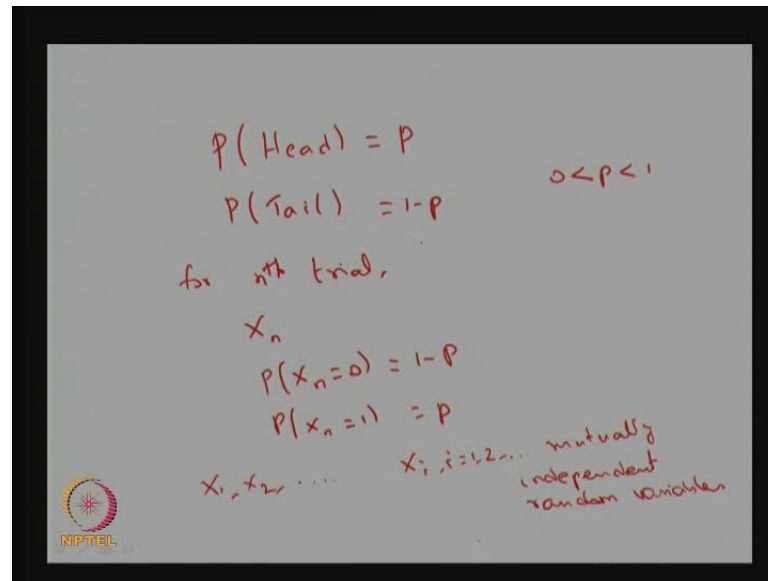 P(Head) = p
P(Tail) = 1-p
0<p<1
for nth trial,
Xn
P(Xn=0) = 1-p
P(Xn=1) = p
X1, X2, .... Xi, i=1,2... mutually
independent
random variables
NPTEL